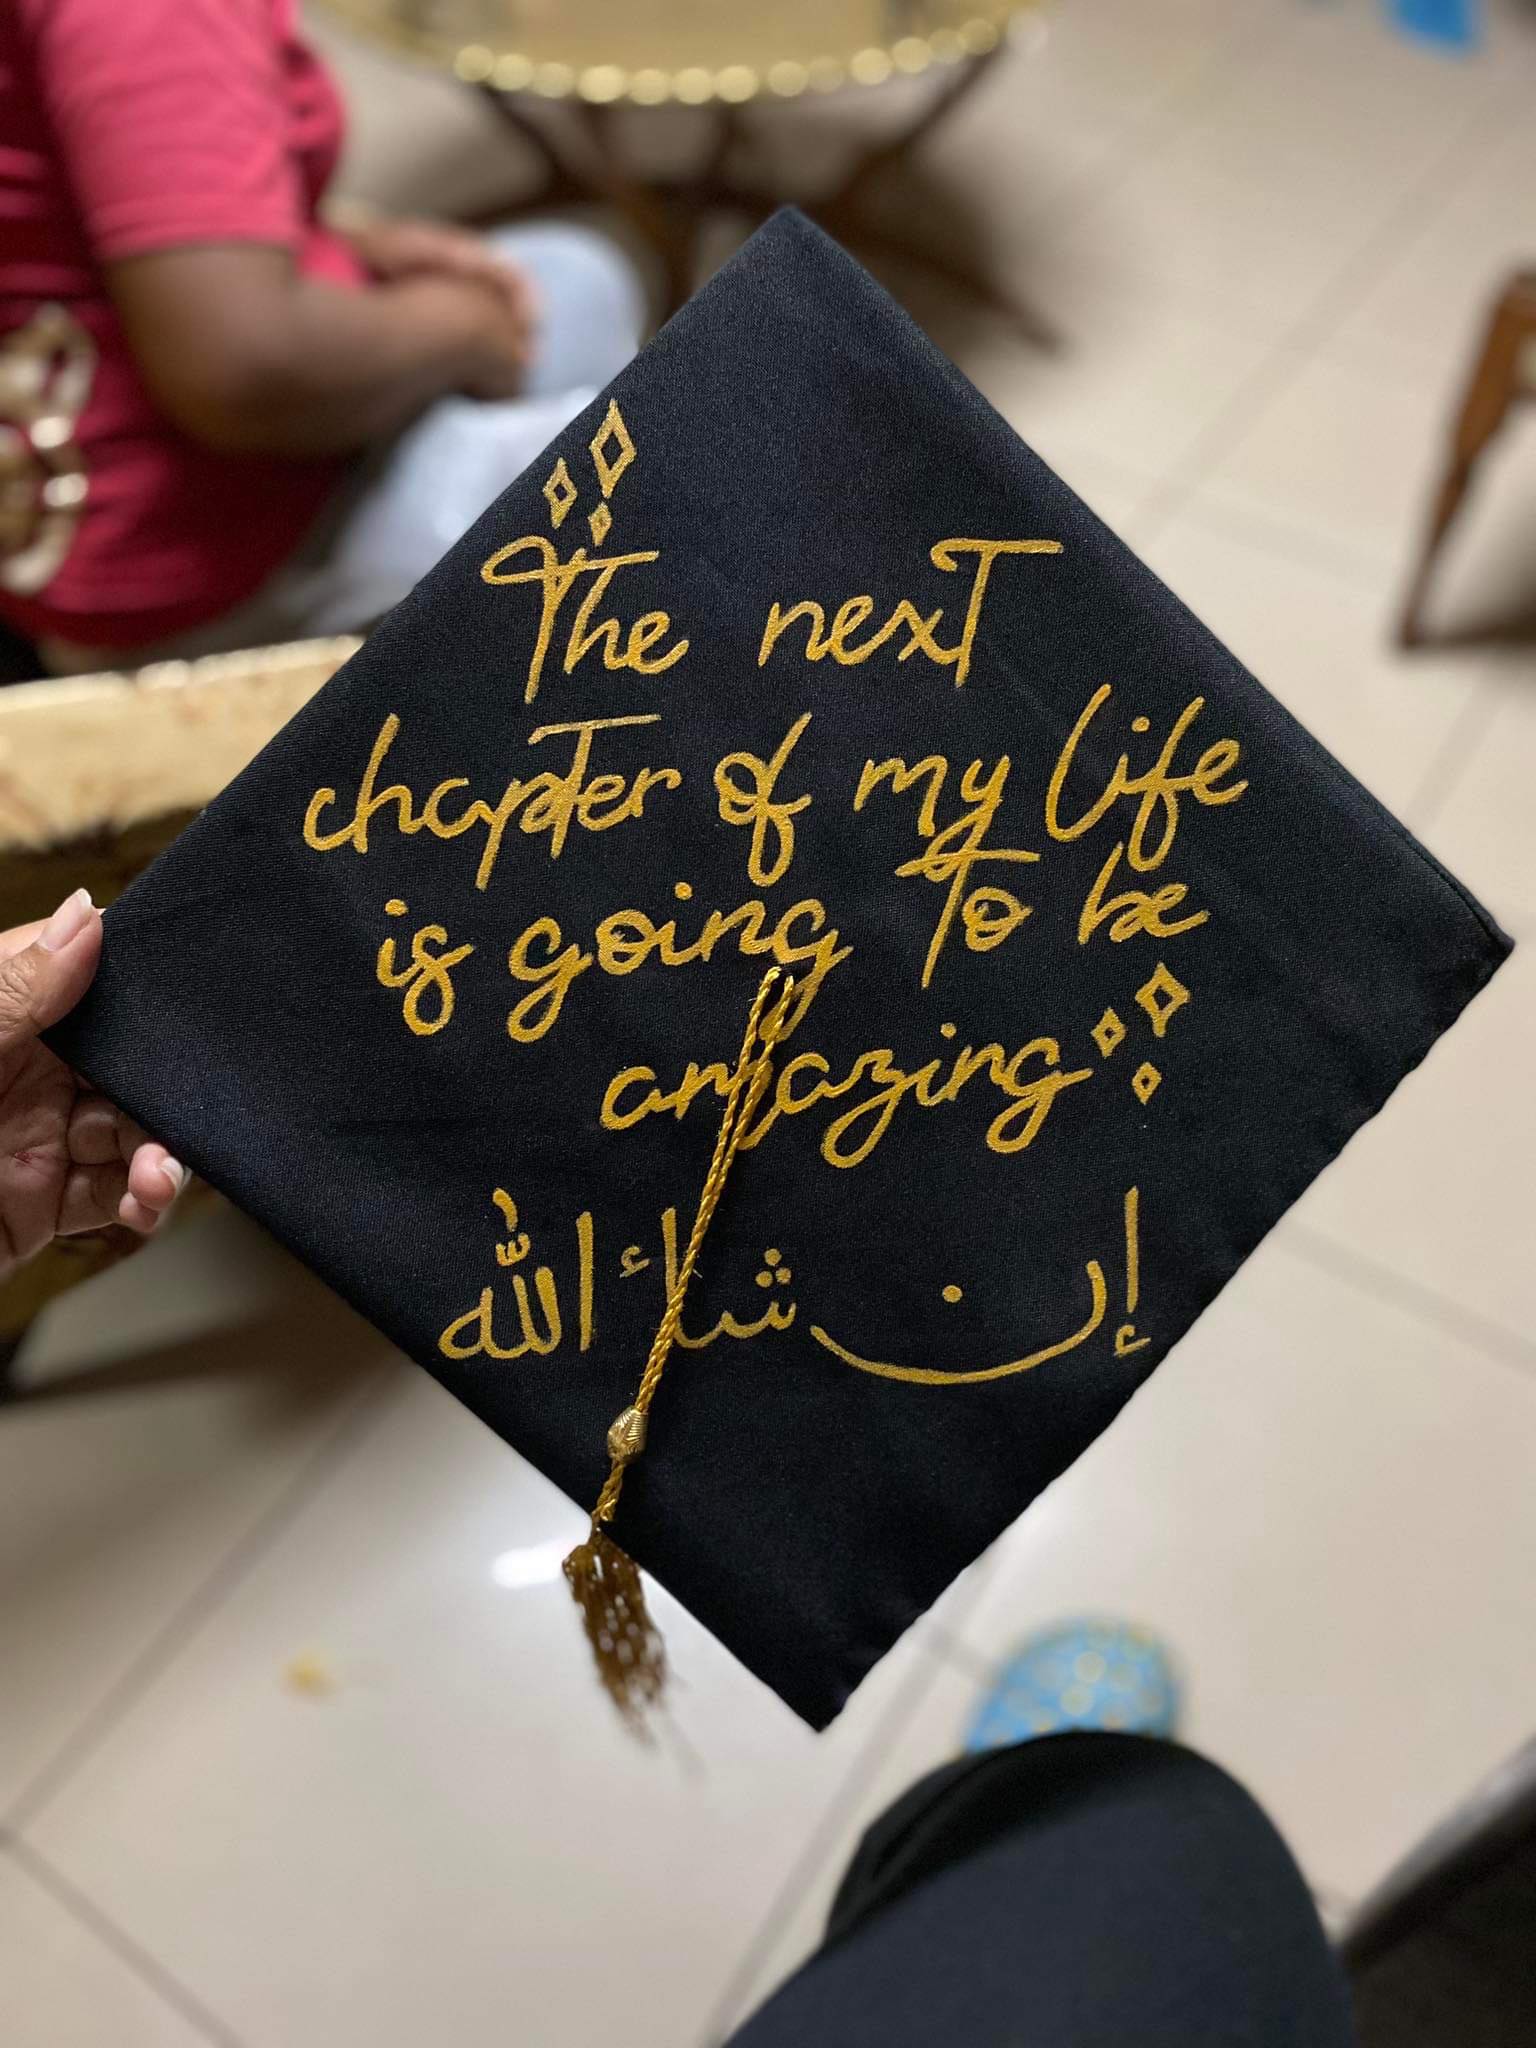 The next
chapter of my life
is going to be
amazing
إن شاء الله